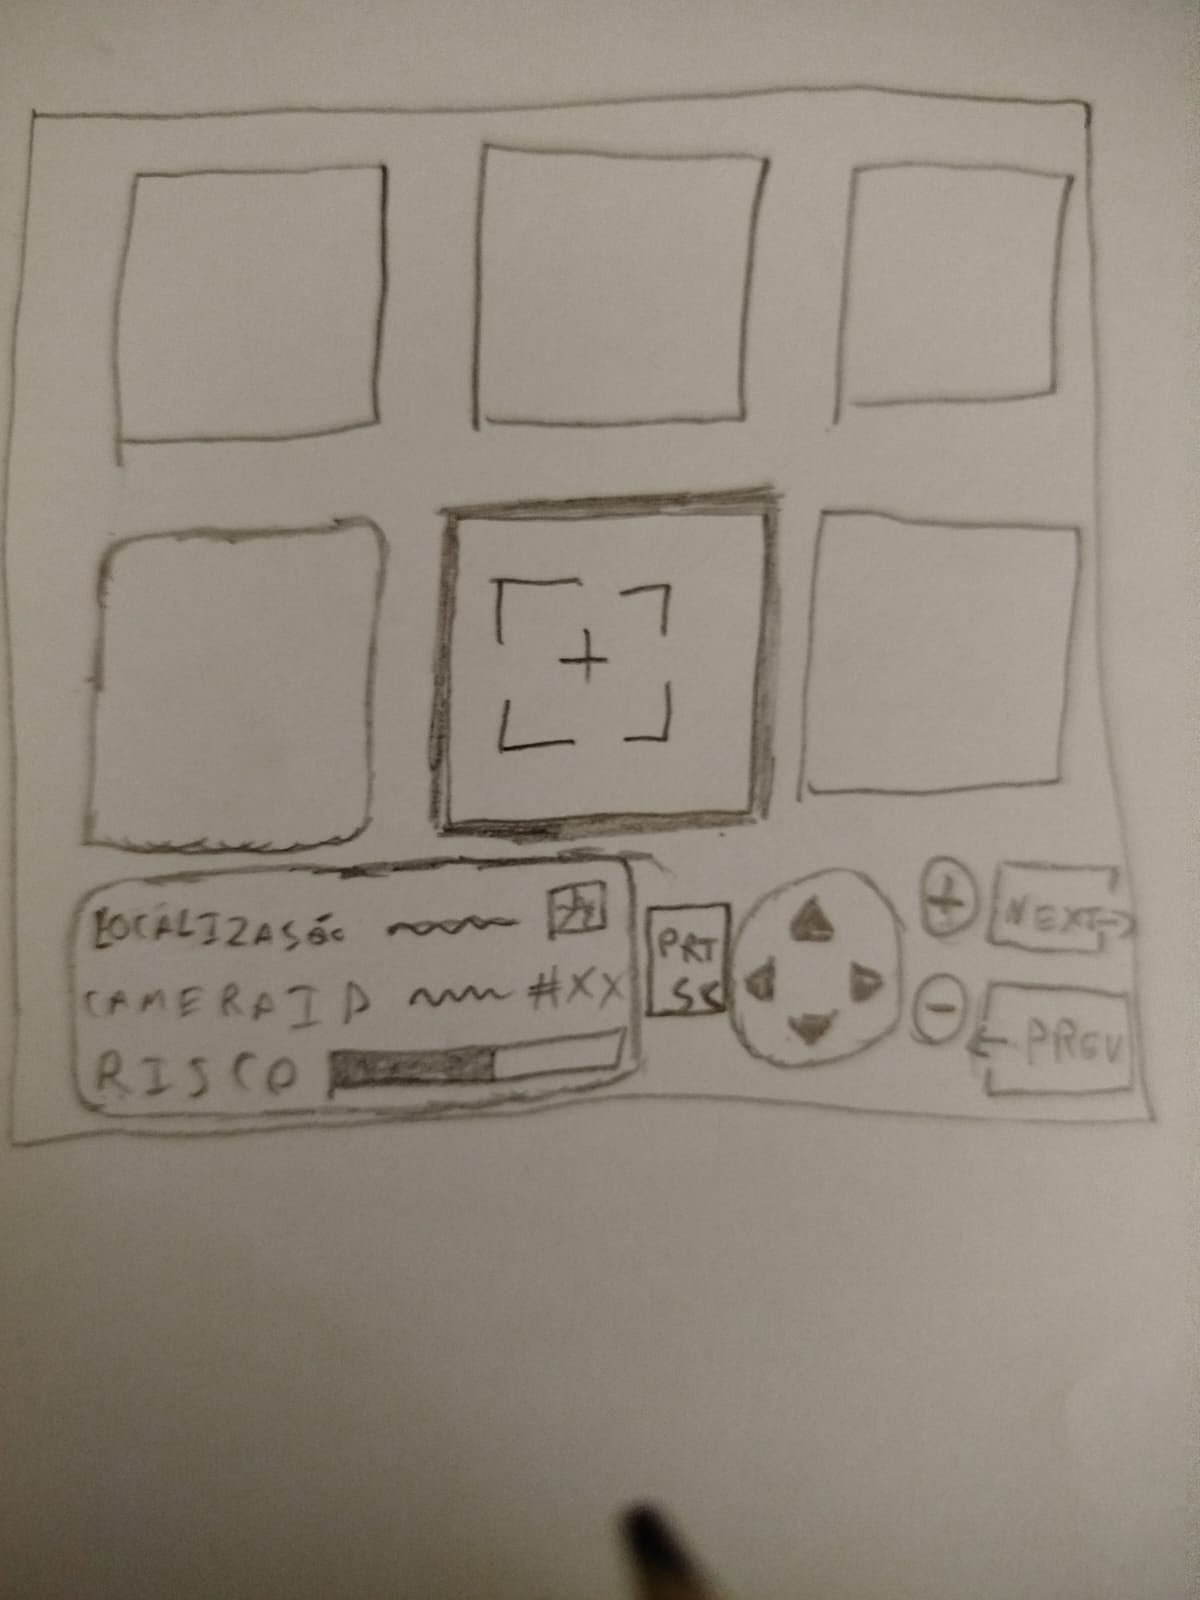 LOCALIZASÃO
CAMERA ID #XX
RISCO
PRT
SC
+
-
NEXT→
← PREV